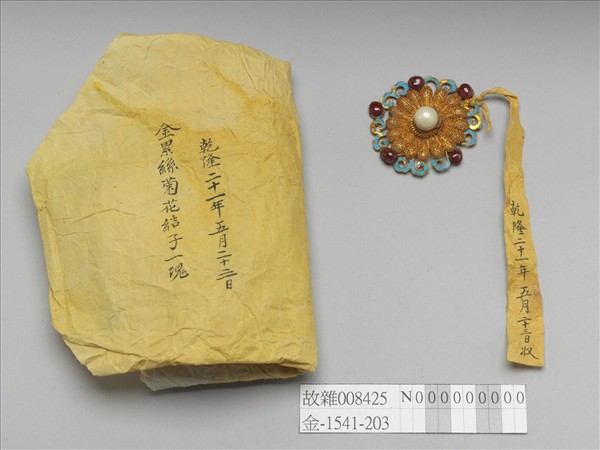 乾隆二十一年五月二十三日
金累絲菊花結子一塊
乾隆二十一年五月二十三日收
故雜008425
金-1541-203
N000000000